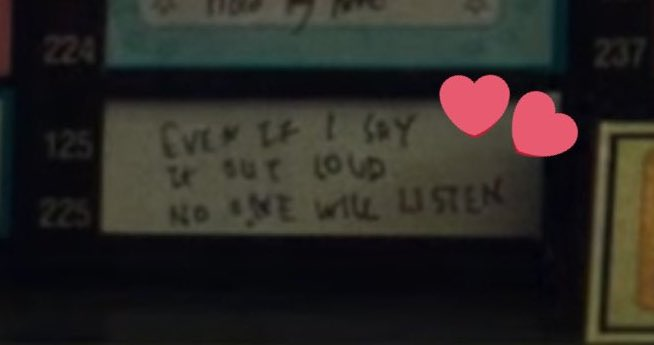 224
Hold my love
237
125
EVEN IF I SAY
IT OUT LOUD
225
NO ONE WILL LISTEN